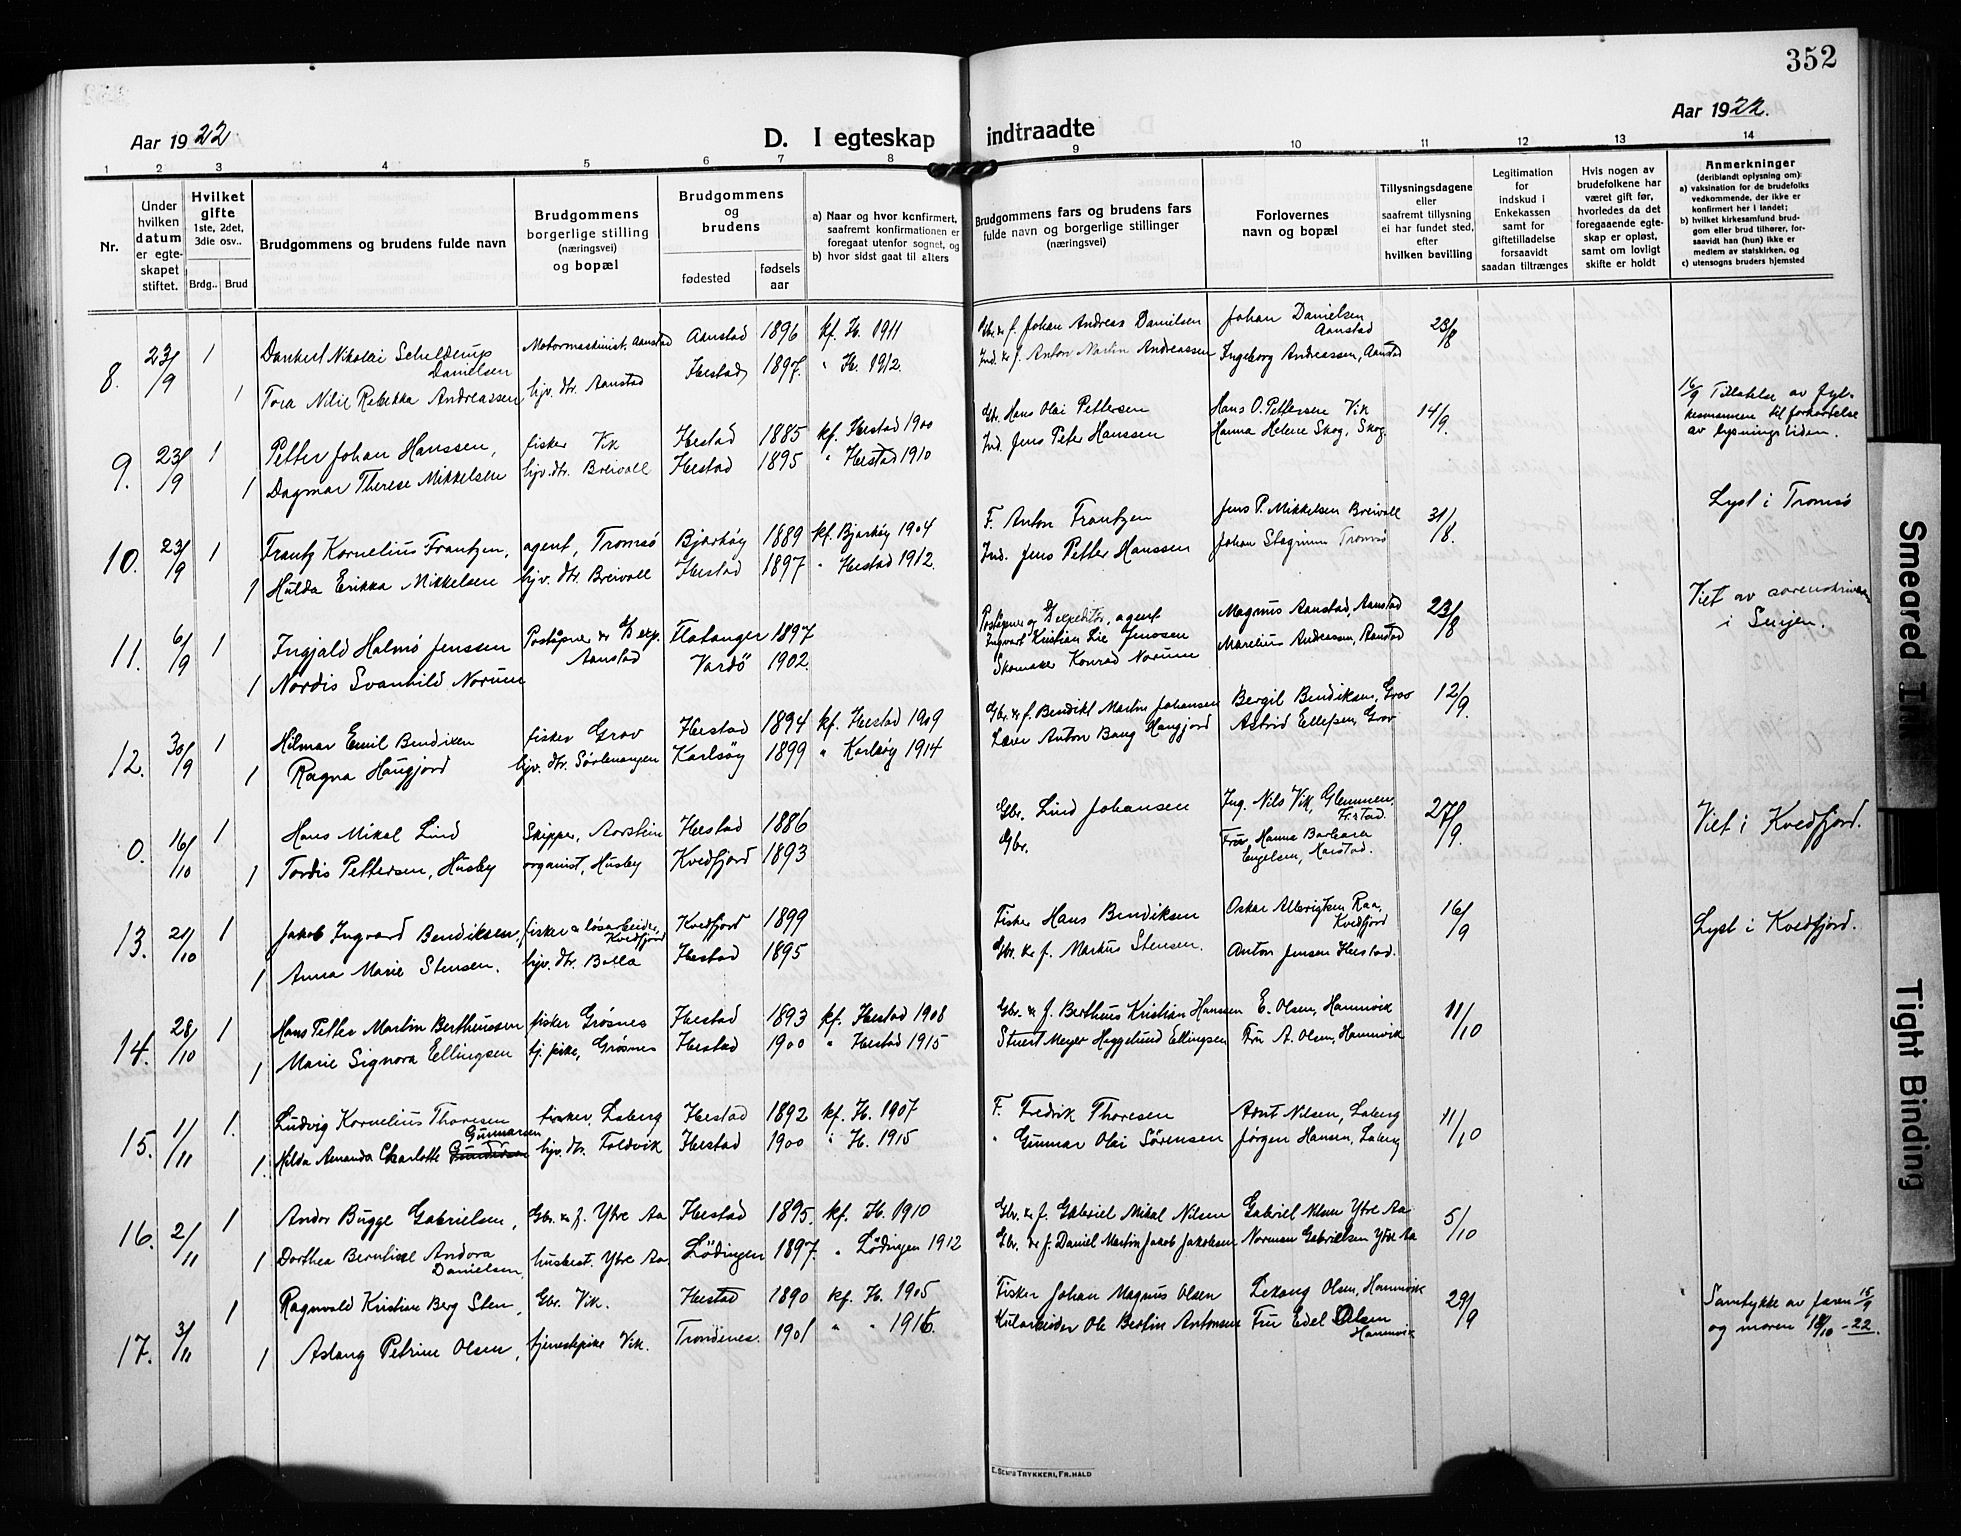 352
Aar 1922
D. I egteskap indtraadte
Aar 1922.
1 2 3 4 5 6 7 8 9 10 11 12 13 14
Nr.
Under hvilken datum er egteskapet stiftet.
Hvilket gifte 1ste, 2det, 3die osv..
Brdg.. Brud
Brudgommens og brudens fulde navn
Brudgommens borgerlige stilling (næringsvei) og bopæl
Brudgommens og brudens
fødested
fødsels aar
a) Naar og hvor konfirmert, saafremt konfirmationen er foregaat utenfor sognet, og
b) hvor sidst gaat til alters
Brudgommens fars og brudens fars fulde navn og borgerlige stillinger (næringsvei)
Forlovernes navn og bopæl
Tillysningsdagene eller saafremt tillysning ei har fundet sted, efter hvilken bevilling
Legitimation for indskud i Enkekassen samt for giftetilladelse forsaavidt saadan tiltrænges
Hvis nogen av brudefolkene har været gift før, hvorledes da det foregaaende egteskap er opløst, samt om lovligt skifte er holdt
Anmerkninger (deriblandt oplysning om):
a) vaksination for de brudefolks vedkommende, der ikke er konfirmert her i landet;
b) hvilket kirkesamfund brudgom eller brud tilhører, forsaavidt han (hun) ikke er medlem av statskirken, og
c) utensogns bruders hjemsted
8. 23/9 1 Dankert Nikolai Schelderup Danielsen Motormaskinist, Aanstad Aanstad 1896 kf. H. 1911 Gbr. & f. Johan Andreas Danielsen Johan Danielsen Aanstad 23/8
1 Tora Nilie Rebekka Andreassen hjv. dtr. Aanstad Ibestad 1897. " H. 1912. Ind. & f. Anton Martin Andreassen Ingeborg Andreassen, Aanstad
9. 23/9 1 Petter Johan Hanssen, fisker Vik Ibestad 1885 kf. Ibestad 1900 Gbr. Hans Olai Pettersen Hans O. Pettersen Vik 14/9. 16/9 Tillatelse av fylkesmannen til forkortelse av lysningstiden.
1 Dagmar Therese Mikkelsen hjv. dtr. Breivoll Ibestad 1895 " Ibestad 1910 Ind. Jens Peter Hanssen Hanna Helene Skog, Skog
10. 23/9 1 Frantz Kornelius Frantzen, agent, Tromsö Bjarköy 1889 kf. Bjarköy 1904 F. Anton Frantzen Jens P. Mikkelsen Breivoll 31/8. Lyst i Tromsö
1 Hulda Erikka Mikkelsen hjv. dtr. Breivoll Ibestad 1897 " Ibestad 1912. Ind. Jens Petter Hanssen Johan Tromsö
11. 6/9 1 Ingjald Holmö Jenssen Poståpner & Aanstad Flatanger 1897 Poståpner og Dexpeditör, agent Ingvart Kristian Lie Jenssen Magnus Aanstad, Aanstad 23/8 Viet av sorenskriveren i Senjen.
1 Nordis Svanhild Norum Vardö 1902. Skomaker Konrad Norum Marelius Andreassen, Aanstad
12. 30/9 1 Hilmar Emil Bendiksen fisker Grov Ibestad 1894 kf. Ibestad 1909 Gbr. & f. Bendikt Martin Johansen Bergit Bendiksen, Grov 12/9.
1 Ragna Haugjord hjv. dtr. Sørlenangen Karlsöy 1899 " Karlsöy 1914 Lærer Anton Bang Haugjord Astrid Ellefsen, Grov
0. 16/10 1 Hans Mikal Lind Skipper, Aarstein Ibestad 1886 Gbr. Lind Johansen Ing. Nils Vik, Glemmen, Fr.stad. 27/9. Viet i Kvedfjord.
1 Tordis Pettersen, Husby organist, Husby Kvedfjord 1893 Gbr. Fru Hanna Barbara Engelsen, Harstad.
13. 21/10 1 Jakob Ingvard Bendiksen, fisker & løsarbeider, Kvedfjord Kvedfjord 1899 Fisker Hans Bendiksen Oskar Albrigtsen Raa, Kvedfjord 16/9 Lyst i Kvedfjord.
1 Anna Marie Stensen. hjv. dtr. Bolla Ibestad 1895 Gbr. & f. Markus Stensen. Anton Jensen Ibestad.
14. 28/10 1 Hans Petter Martin Bertheussen fisker Grøsnes Ibestad 1893 kf. Ibestad 1908 Gbr. & f. Bertheus Kristian Hanssen E. Olsen, Hamnvik 11/10
1 Marie Signora Ellingsen tj. pike, Grøsnes Ibestad 1900 " Ibestad 1915 Stuert Meyer Heggelund Ellingsen Fru A. Olsen, Hamnvik
15. 1/11 1. Ludvig Kornelius Thoresen fisker, Laberg Ibestad 1892 kf. H. 1907 F. Fredrik Thoresen Arnt Nilsen, Laberg 11/10
1. Hilda Amanda Charlotte Gunnarsen hjv. dtr. Foldvik Ibestad 1900 " H. 1915 " Gunnar Olai Sörensen Jørgen Hansen, Laberg
16. 2/11 1 Andor Bugge Gabrielsen, Gbr. & f. Ytre Aa Ibestad 1895. kf. H. 1910 Gbr. & f. Gabriel Mikal Nilsen Gabriel Nilsen Ytre Aa 5/10
1 Dorthea Berntine Andora Danielsen, husbest. Ytre Aa Lödingen 1897. " Lödingen 1912 Gbr. & f. Daniel Martin Jakob Jakobsen Norman Gabrielsen Ytre Aa
17. 3/11 1 Ragnvald Kristian Berg Sten, Gbr. Vik. Ibestad 1890 kf. H. 1905 Fisker Johan Magnus Olsen Lekang Olsen, Hamnvik 29/9 Samtykke av faren 15/9 og moren 18/10 -22.
1 Aslaug Petrine Olsen, tjenestepike Vik. Trondenes. 1901 " " 1916. Ole Bertin Antonsen Fru Edel Olsen Hamnvik
E. SEM'S TRYKKERI, FR.HALD
Smeared Ink
Tight Binding